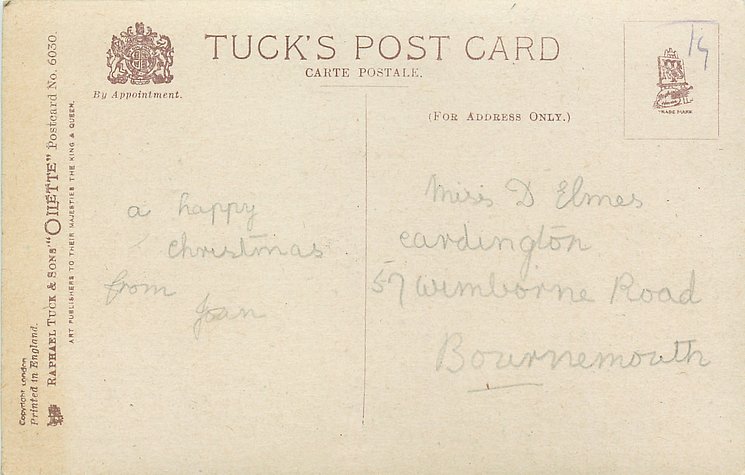 TUCK'S POST CARD
CARTE POSTALE.
By Appointment.
(FOR ADDRESS ONLY.)
TRADE MARK
19
a happy
christmas
from
Joan
Miss D Elmes
cardington
57 Wimborne Road
Bournemouth
RAPHAEL TUCK & SONS' "OILETTE" Postcard No. 6030.
ART PUBLISHERS TO THEIR MAJESTIES THE KING & QUEEN.
Copyright London
Printed in England.